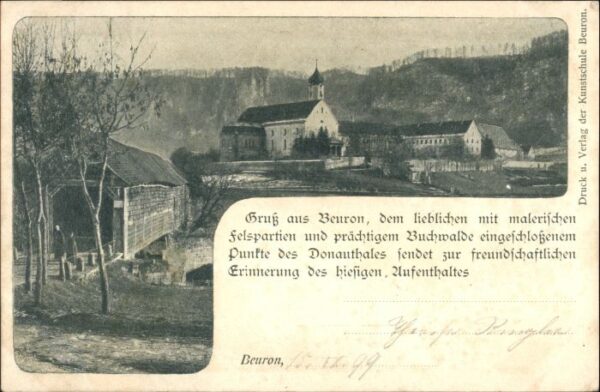 Druck u. Verlag der Kunstschule Beuron.
Gruß aus Beuron, dem lieblichen mit malerischen
Felspartien und prächtigem Buchwalde eingeschloßenem
Punkte des Donauthales sendet zur freundschaftlichen
Erinnerung des hiesigen Aufenthaltes
Beuron, 99